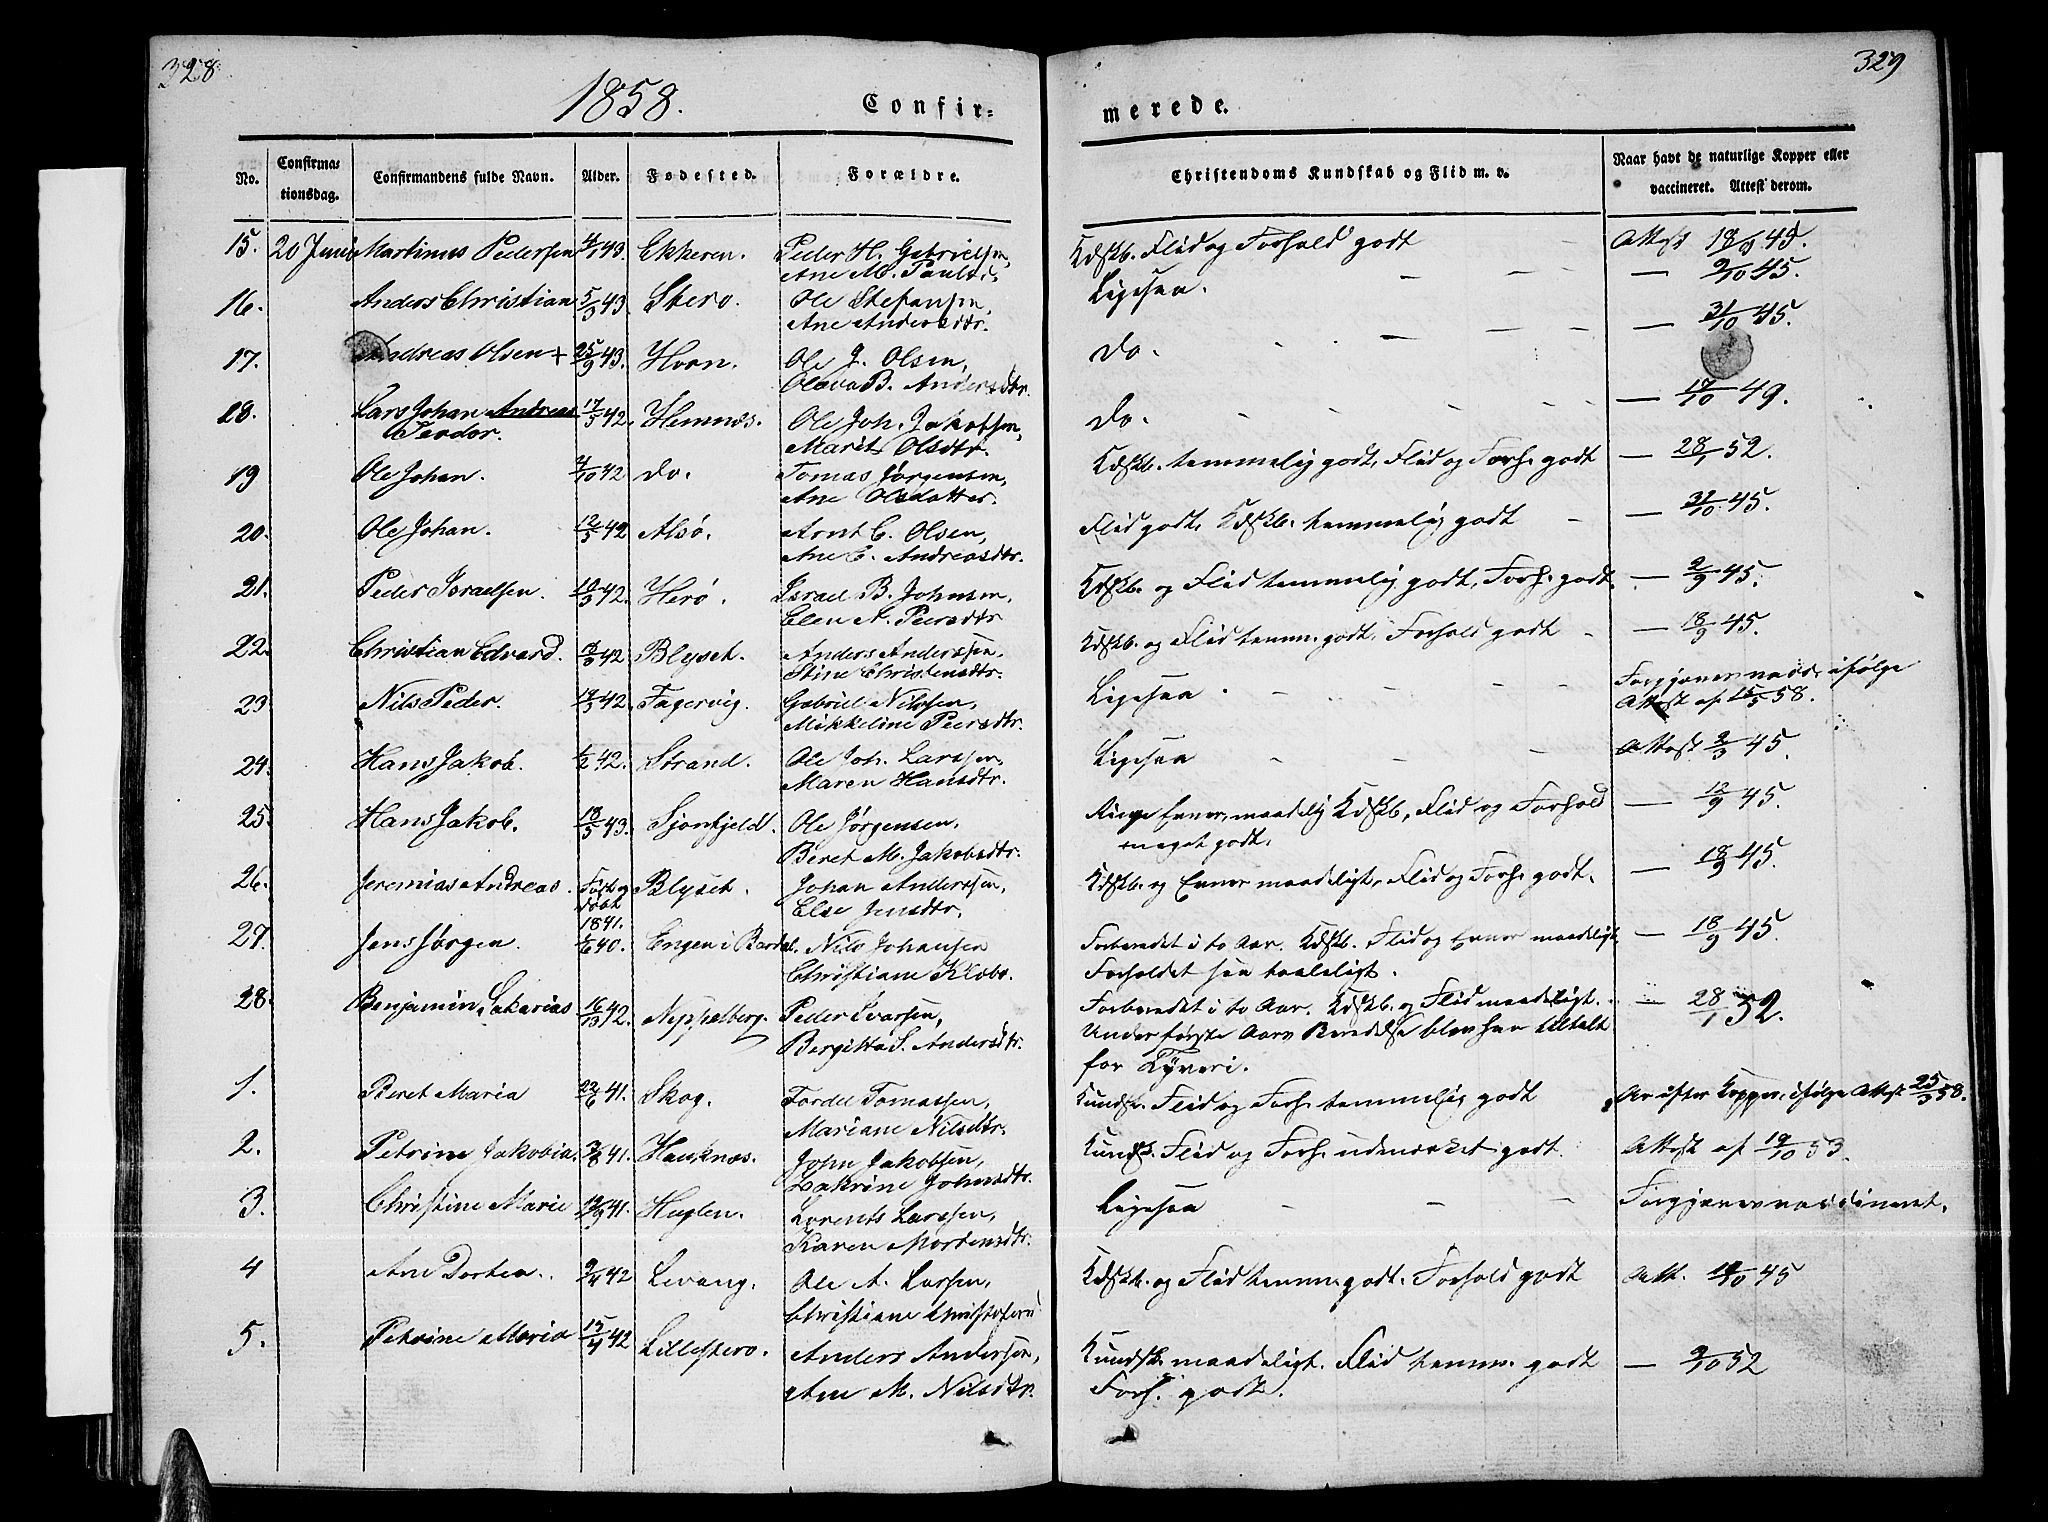 328
1858.
Confir-
No.
Confirmationsdag.
Confirmandens fulde Navn.
Alder.
Fødested.
Forældre.
15. 20 Juni Martinus Pedersen 4/1 43. Ekkeren. Peder H. Gabrielsen,
Ane M. Paulsd.
16. Anders Christian 5/3 43 Sterø. Ole Stefansen,
Ane Andersdtr.
17. Andreas Olsen + 25/9 43. Hvon. Ole J. Olsen,
Olava B. Andersdtr.
18. Lars Johan Andreas 17/5 42. Hemnæs. Ole Joh. Jakobsen,
Teodor. Marit Olsdtr.
19 Ole Johan. 4/10 42 do. Tomas Jørgensen,
Ane Olsdatter.
20. Ole Johan. 12/5 42 Alsø. Arnt C. Olsen,
Ane C. Andreasdtr.
21. Peder Israelsen. 10/3 42. Herø. Israel B. Johnsen,
Elen A. Peersdtr
22. Christian Edvard. 18/3 42 Blyset. Anders Anderssen.
Stine Christensdtr.
23 Nils Peder. 14/5 42. Fagervig. Gabriel Nilssen,
Mikkeline Peersdtr.
24. Hans Jakob. 1/2 42. Strand. Ole Joh. Larssen,
Maren Hansdtr.
25. Hans Jakob. 18/5 43. Sjonfjeld. Ole Jørgensen,
Beret M. Jakobsdtr.
26. Jeremias Andreas. Født og Blyset. Johan Anderssen,
døbt Else Jensdtr.
1841.
27. Jens Jørgen. 1/6 40. Engen i Bardal. Nils Johansen
Christiane Klæbo.
28. Benjamin Sakarias 16/13 42. Neppelberg. Peder Ivarsen,
Bergitta S. Andersdtr.
1. Beret Maria 22/6 41. Skog. Tordel Tomassen,
Mariane Nilsdtr.
2. Petrine Jakobia. 3/8 41. Hauknæs. John Jakobsen,
Zakrine Johnsdtr.
3. Christine Marie 19/9 41. Huglen. Lorents Larssen,
Karen Mortensdtr.
4 Ane Dortea. 9/4 42 Levang. Ole A. Larsen,
Christiane Christofersd
5. Petrine Maria 15/4 42 Lillesterø. Anders Andersen,
Ane M. Nilsdtr.
329
merede.
Christendoms Kundskab og Flid m. v.
Naar havt de naturlige Kopper eller
vaccineret. Attest derom.
Kdskb. Flid og Forhold godt Attest 18/9 45.
Ligesaa. — 9/10 45.
do. — 31/10 45.
do. — 17/10 49.
Kdskb. temmelig godt, Flid og Forh. godt — 28/1 52.
Flid godt, Kdskb. temmelig godt — 31/10 45.
Kdskb. og Flid temmelig godt, Forh. godt. — 2/9 45.
Kdskb. og Flid temm. godt, Forhold godt — 18/9 45.
Ligesaa. Forgjæves vacc. ifølge
Attest af 15/5 58.
Ligesaa Attest 2/3 45.
Ringe Evner, maadelig Kdskb, Flid og Forhold — 12/9 45.
meget godt.
Kdskb. og Evner maadeligt, Flid og Forh. godt. — 18/9 45.
Forberedet i to Aar. Kdskb. Flid og Evner maadeligt, — 18/9 45.
Forholdet saa taaleligt.
Forberedet i to Aar. Kdskb. og Flid maadeligt. — 28/1 52.
Under første Aars Beredelse blev han tiltalt
for Tyveri.
Kundsk. Flid og Forh. temmelig godt Ar efter Kopper, ifølge Attest 25/3 58.
Kundsk. Flid og Forh. udmærket godt. Attest af 19/10 53.
Ligesaa Forgjæves vaccineret.
Kdskb. og Flid temm. godt. Forhold godt Att. 19/10 45
Kundsk. maadeligt. Flid temm. godt — 9/10 52
Forh. godt.